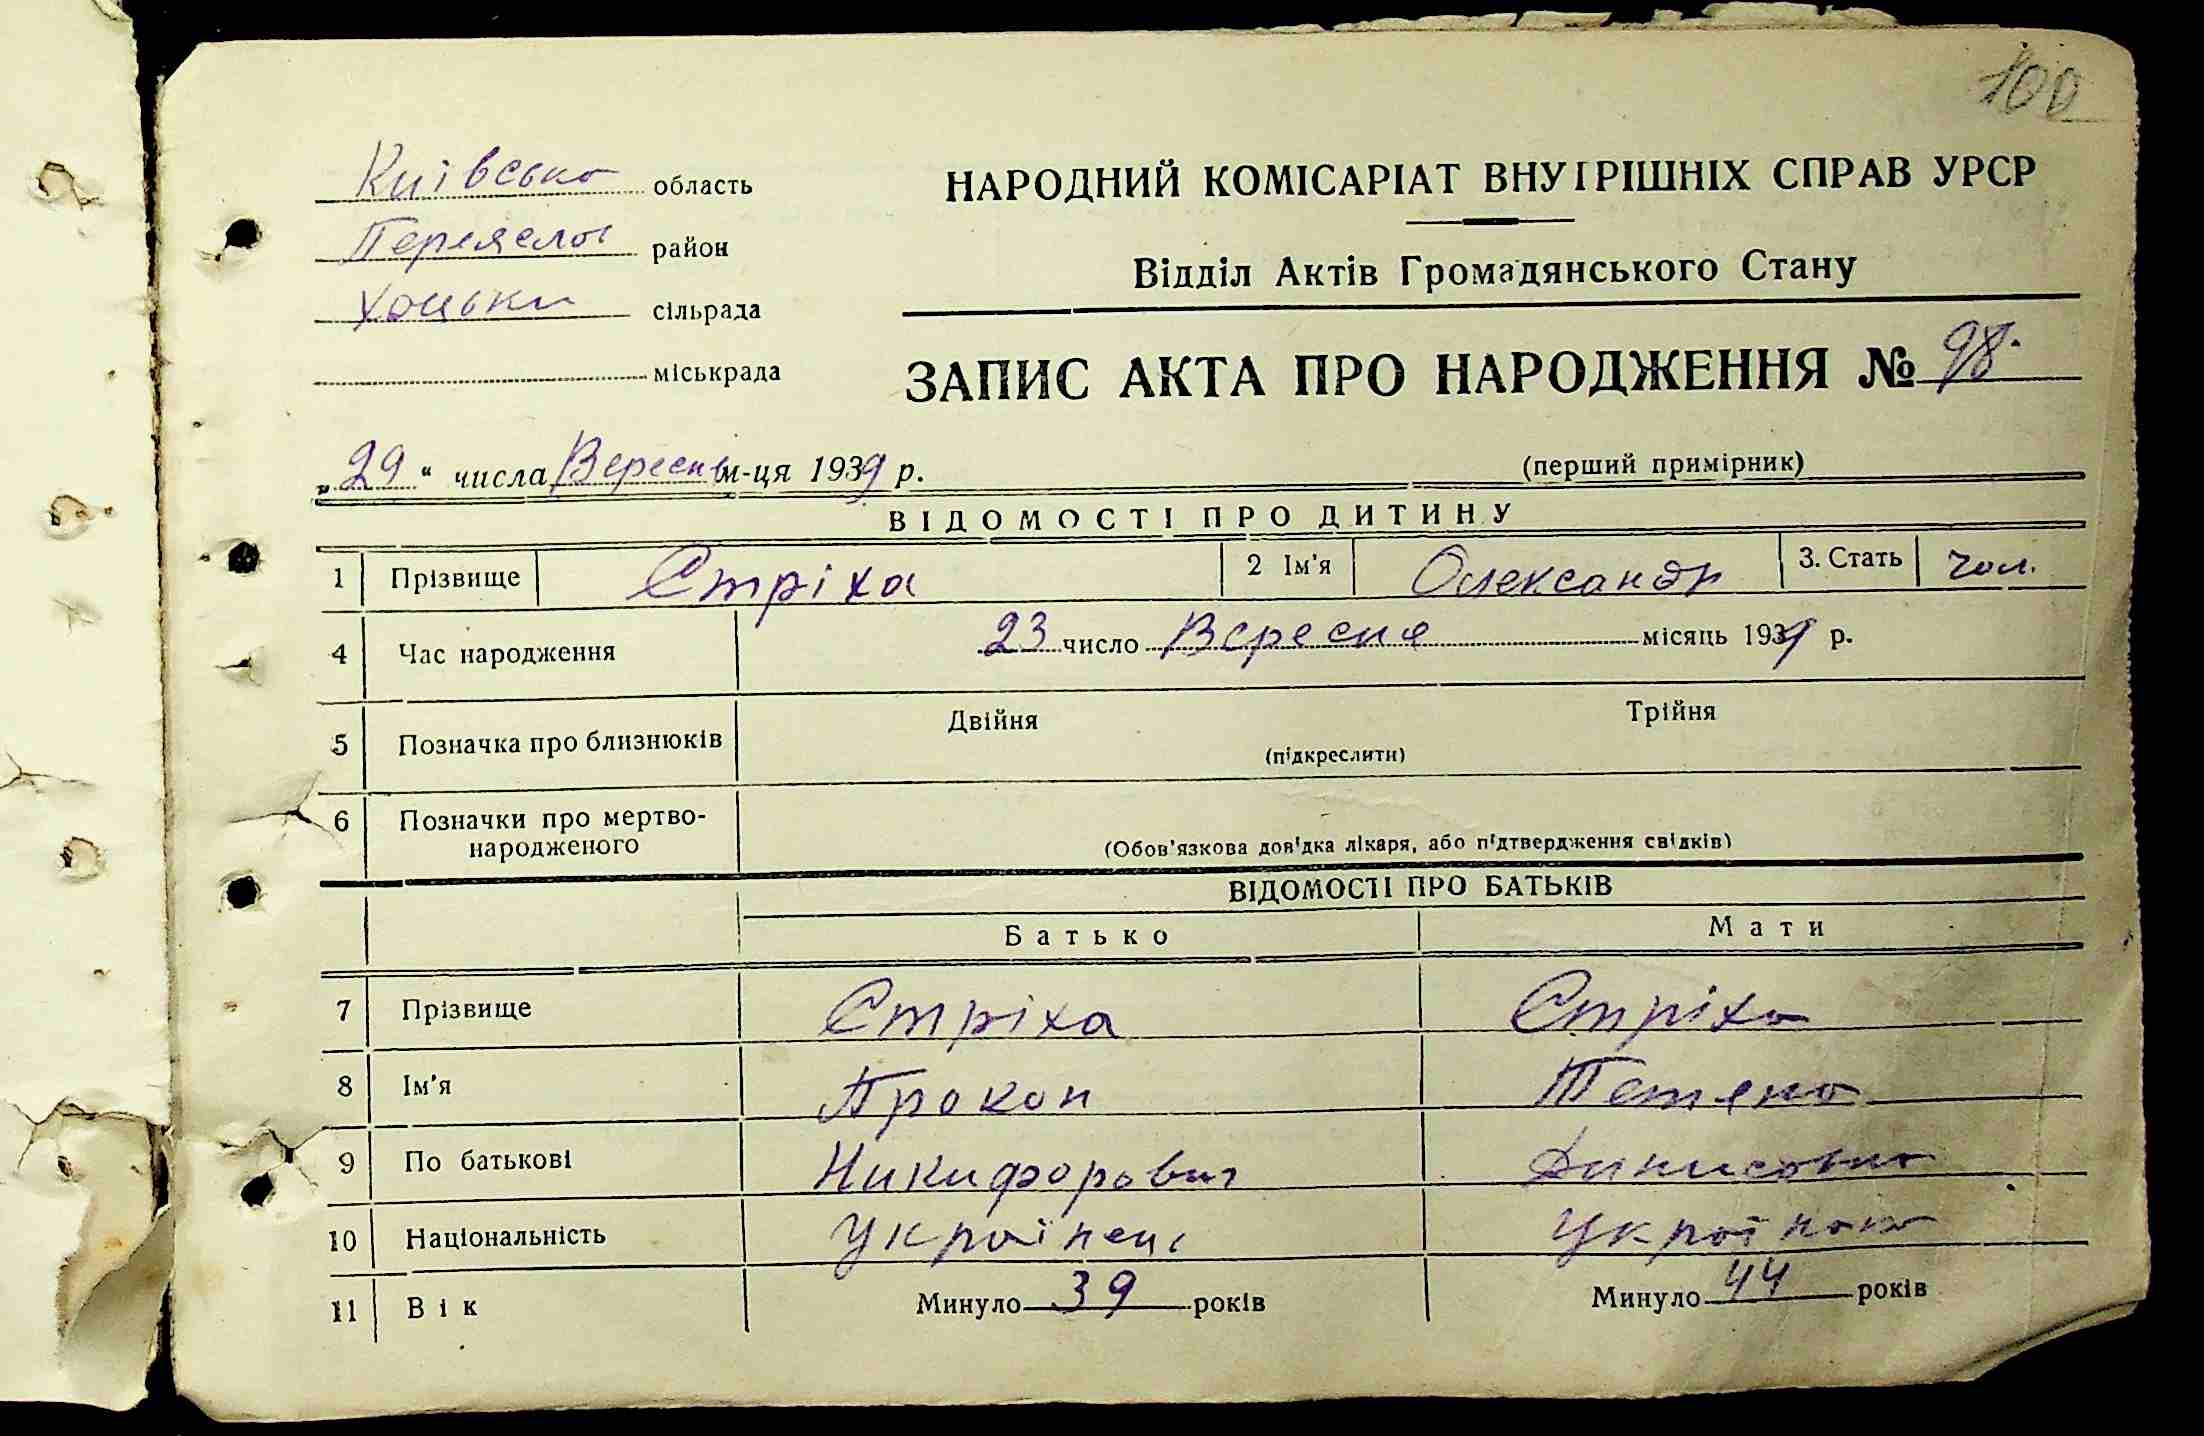 100
Київська область
Переяслав район
Хоцьки сільрада
міськрада
НАРОДНИЙ КОМІСАРІАТ ВНУТРІШНІХ СПРАВ УРСР
Відділ Актів Громадянського Стану
ЗАПИС АКТА ПРО НАРОДЖЕННЯ № 98.
„29“ числа Вересня м-ця 1939 р.
(перший примірник)
ВІДОМОСТІ ПРО ДИТИНУ
1 Прізвище Стріха 2 Ім'я Олександр 3. Стать чол.
4 Час народження 23 число Вересня місяць 1939 р.
5 Позначка про близнюків Двійня Трійня
(підкреслити)
6 Позначки про мертво-
народженого
(Обов'язкова довідка лікаря, або підтвердження свідків)
ВІДОМОСТІ ПРО БАТЬКІВ
Батько Мати
7 Прізвище Стріха Стріха
8 Ім'я Прокоп Тетяна
9 По батькові Никифорович Динисовна
10 Національність Українець Українка
11 Вік Минуло 39 років Минуло 44 років